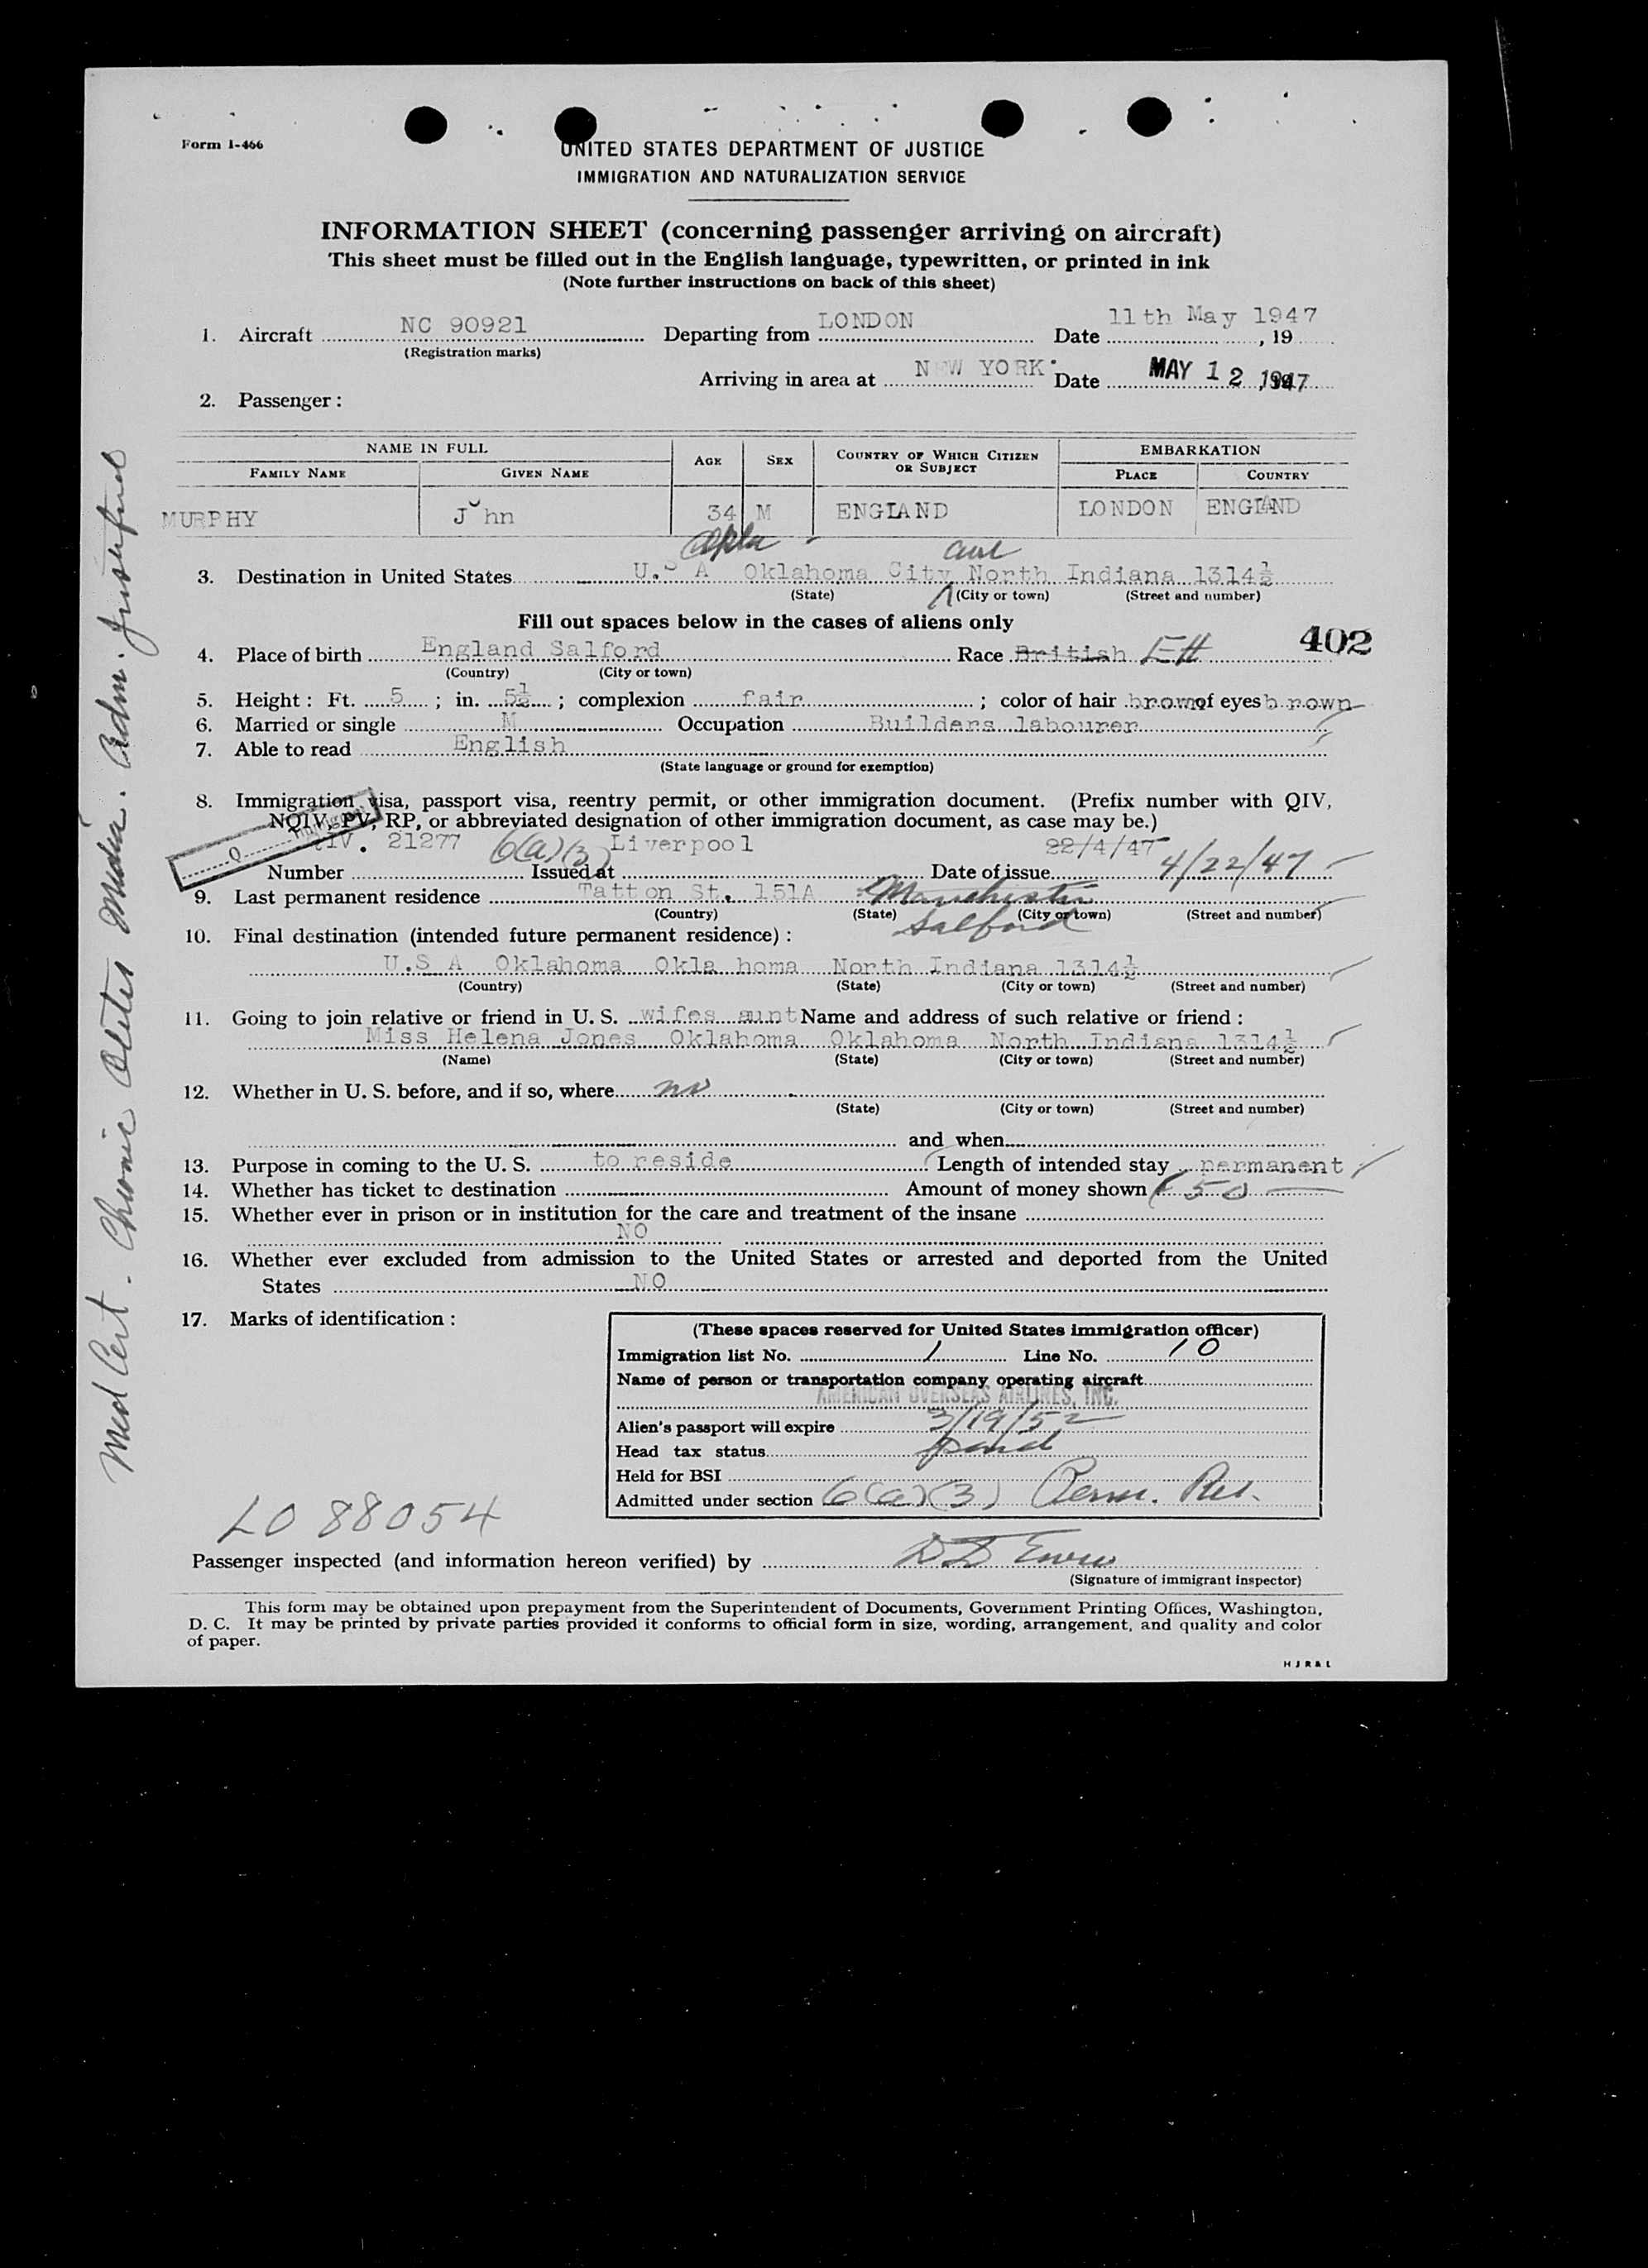 Form I-466
UNITED STATES DEPARTMENT OF JUSTICE
IMMIGRATION AND NATURALIZATION SERVICE
INFORMATION SHEET (concerning passenger arriving on aircraft)
This sheet must be filled out in the English language, typewritten, or printed in ink
(Note further instructions on back of this sheet)
1. Aircraft NC 90921 Departing from LONDON Date 11th May 1947, 19
(Registration marks)
Arriving in area at NEW YORK Date MAY 12 1947
2. Passenger:
NAME IN FULL AGE SEX COUNTRY OF WHICH CITIZEN OR SUBJECT EMBARKATION
FAMILY NAME GIVEN NAME PLACE COUNTRY
MURPHY John 34 M ENGLAND LONDON ENGLAND
Okla
3. Destination in United States U.S A Oklahoma City North Indiana 1314½
(State) (City or town) (Street and number)
Fill out spaces below in the cases of aliens only
402
4. Place of birth England Salford Race British
(Country) (City or town)
5. Height: Ft. 5; in. 5½; complexion fair; color of hair brown of eyes brown
6. Married or single M Occupation Builders labourer
7. Able to read English
(State language or ground for exemption)
8. Immigration visa, passport visa, reentry permit, or other immigration document. (Prefix number with QIV,
NQIV, PV, RP, or abbreviated designation of other immigration document, as case may be.)
Q IV. 21277 6(a)(3) Liverpool 22/4/47 4/22/47
Number Issued at Date of issue
9. Last permanent residence Tatton St. 151A Manchester
(Country) (State) (City or town) (Street and number)
Salford
10. Final destination (intended future permanent residence):
U.S A Oklahoma Okla homa North Indiana 1314½
(Country) (State) (City or town) (Street and number)
11. Going to join relative or friend in U. S. wifes aunt Name and address of such relative or friend:
Miss Helena Jones Oklahoma Oklahoma North Indiana 1314½
(Name) (State) (City or town) (Street and number)
12. Whether in U. S. before, and if so, where no
(State) (City or town) (Street and number)
and when
13. Purpose in coming to the U. S. to reside Length of intended stay permanent
14. Whether has ticket to destination Amount of money shown 50
15. Whether ever in prison or in institution for the care and treatment of the insane
NO
16. Whether ever excluded from admission to the United States or arrested and deported from the United
States NO
17. Marks of identification:
(These spaces reserved for United States immigration officer)
Immigration list No. 1 Line No. 10
Name of person or transportation company operating aircraft
AMERICAN OVERSEAS AIRLINES, INC.
Alien's passport will expire 3/19/52
Head tax status paid
Held for BSI
Admitted under section 6(a)(3) Perm. Res.
LO 88054
Passenger inspected (and information hereon verified) by
(Signature of immigrant inspector)
This form may be obtained upon prepayment from the Superintendent of Documents, Government Printing Offices, Washington,
D. C. It may be printed by private parties provided it conforms to official form in size, wording, arrangement, and quality and color
of paper.
H J R & L
Med Cert. Chronic Otitis Media. Adm.